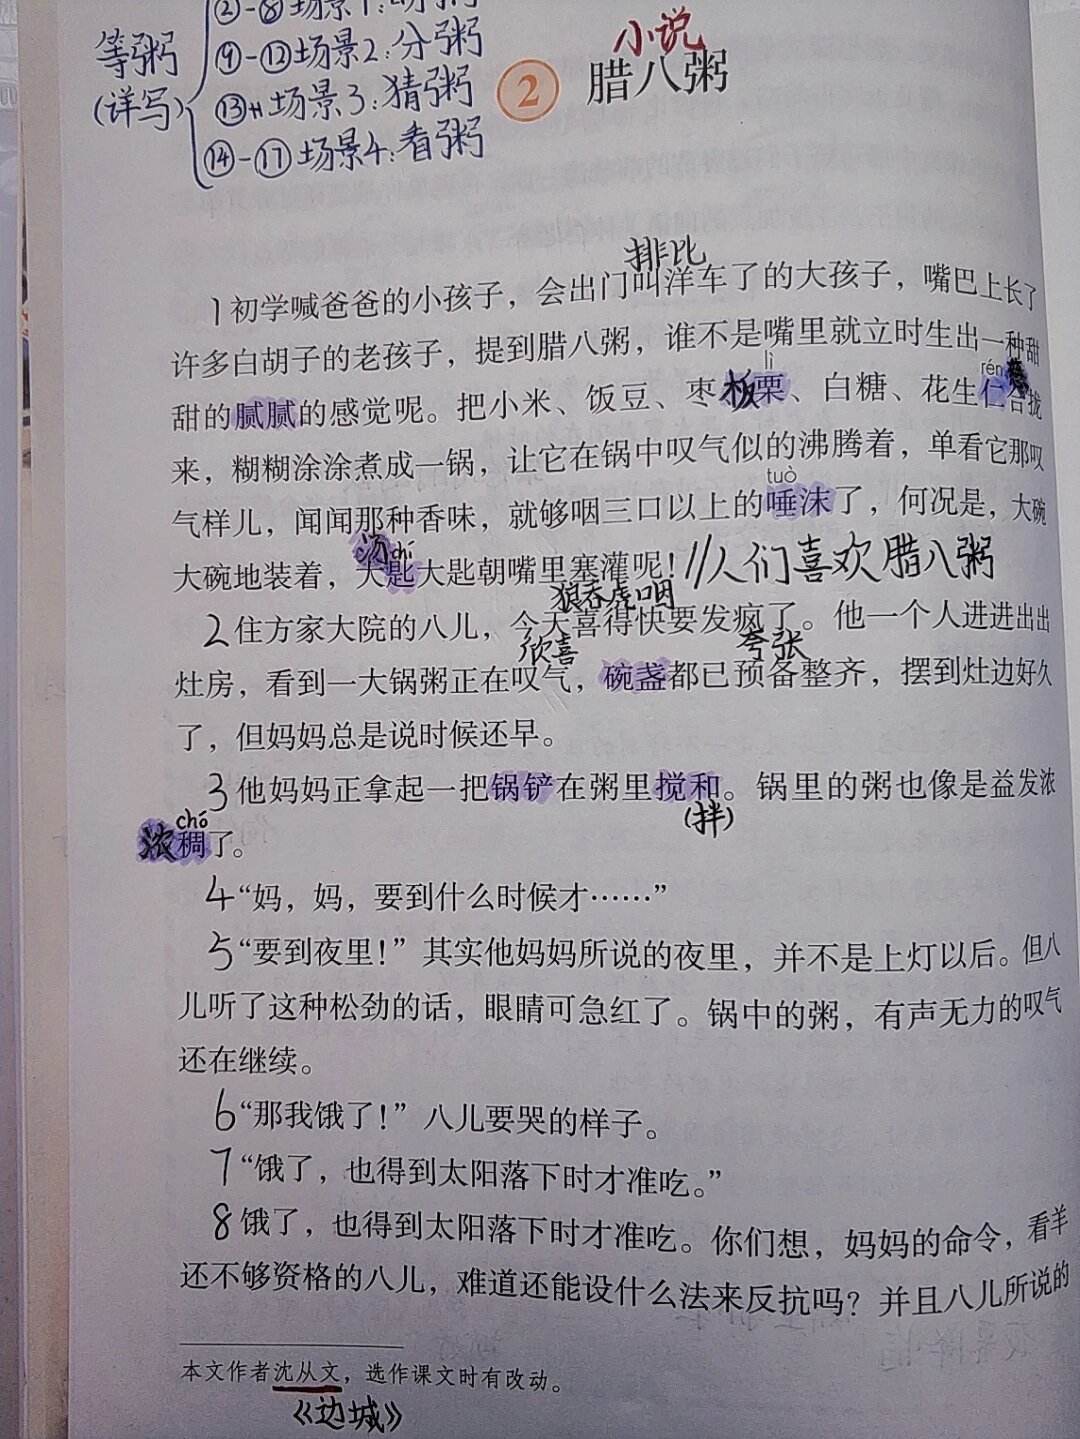 ②-⑧场景1:
等粥
(详写)
⑨-⑫场景2:分粥
⑬场景3:猜粥
⑭-⑰场景4:看粥
小说
2 腊八粥
排比
1初学喊爸爸的小孩子，会出门叫洋车了的大孩子，嘴巴上长了
许多白胡子的老孩子，提到腊八粥，谁不是嘴里就立时生出一种甜
lì
rén
甜的腻腻的感觉呢。把小米、饭豆、枣、板栗、白糖、花生仁合拢
来，糊糊涂涂煮成一锅，让它在锅中叹气似的沸腾着，单看它那叹
tuò
气样儿，闻闻那种香味，就够咽三口以上的唾沫了，何况是，大碗
汤chí
大碗地装着，大匙大匙朝嘴里塞灌呢！//人们喜欢腊八粥
狼吞虎咽
2住方家大院的八儿，今天喜得快要发疯了。他一个人进进出出
欣喜 夸张
灶房，看到一大锅粥正在叹气，碗盏都已预备整齐，摆到灶边好久
了，但妈妈总是说时候还早。
3他妈妈正拿起一把锅铲在粥里搅和。锅里的粥也像是益发浓
(拌)
chó
浓稠了。
4“妈，妈，要到什么时候才……”
5“要到夜里！”其实他妈妈所说的夜里，并不是上灯以后。但八
儿听了这种松劲的话，眼睛可急红了。锅中的粥，有声无力的叹气
还在继续。
6“那我饿了！”八儿要哭的样子。
7“饿了，也得到太阳落下时才准吃。”
8饿了，也得到太阳落下时才准吃。你们想，妈妈的命令，看羊
还不够资格的八儿，难道还能设什么法来反抗吗？并且八儿所说的
本文作者沈从文，选作课文时有改动。
《边城》